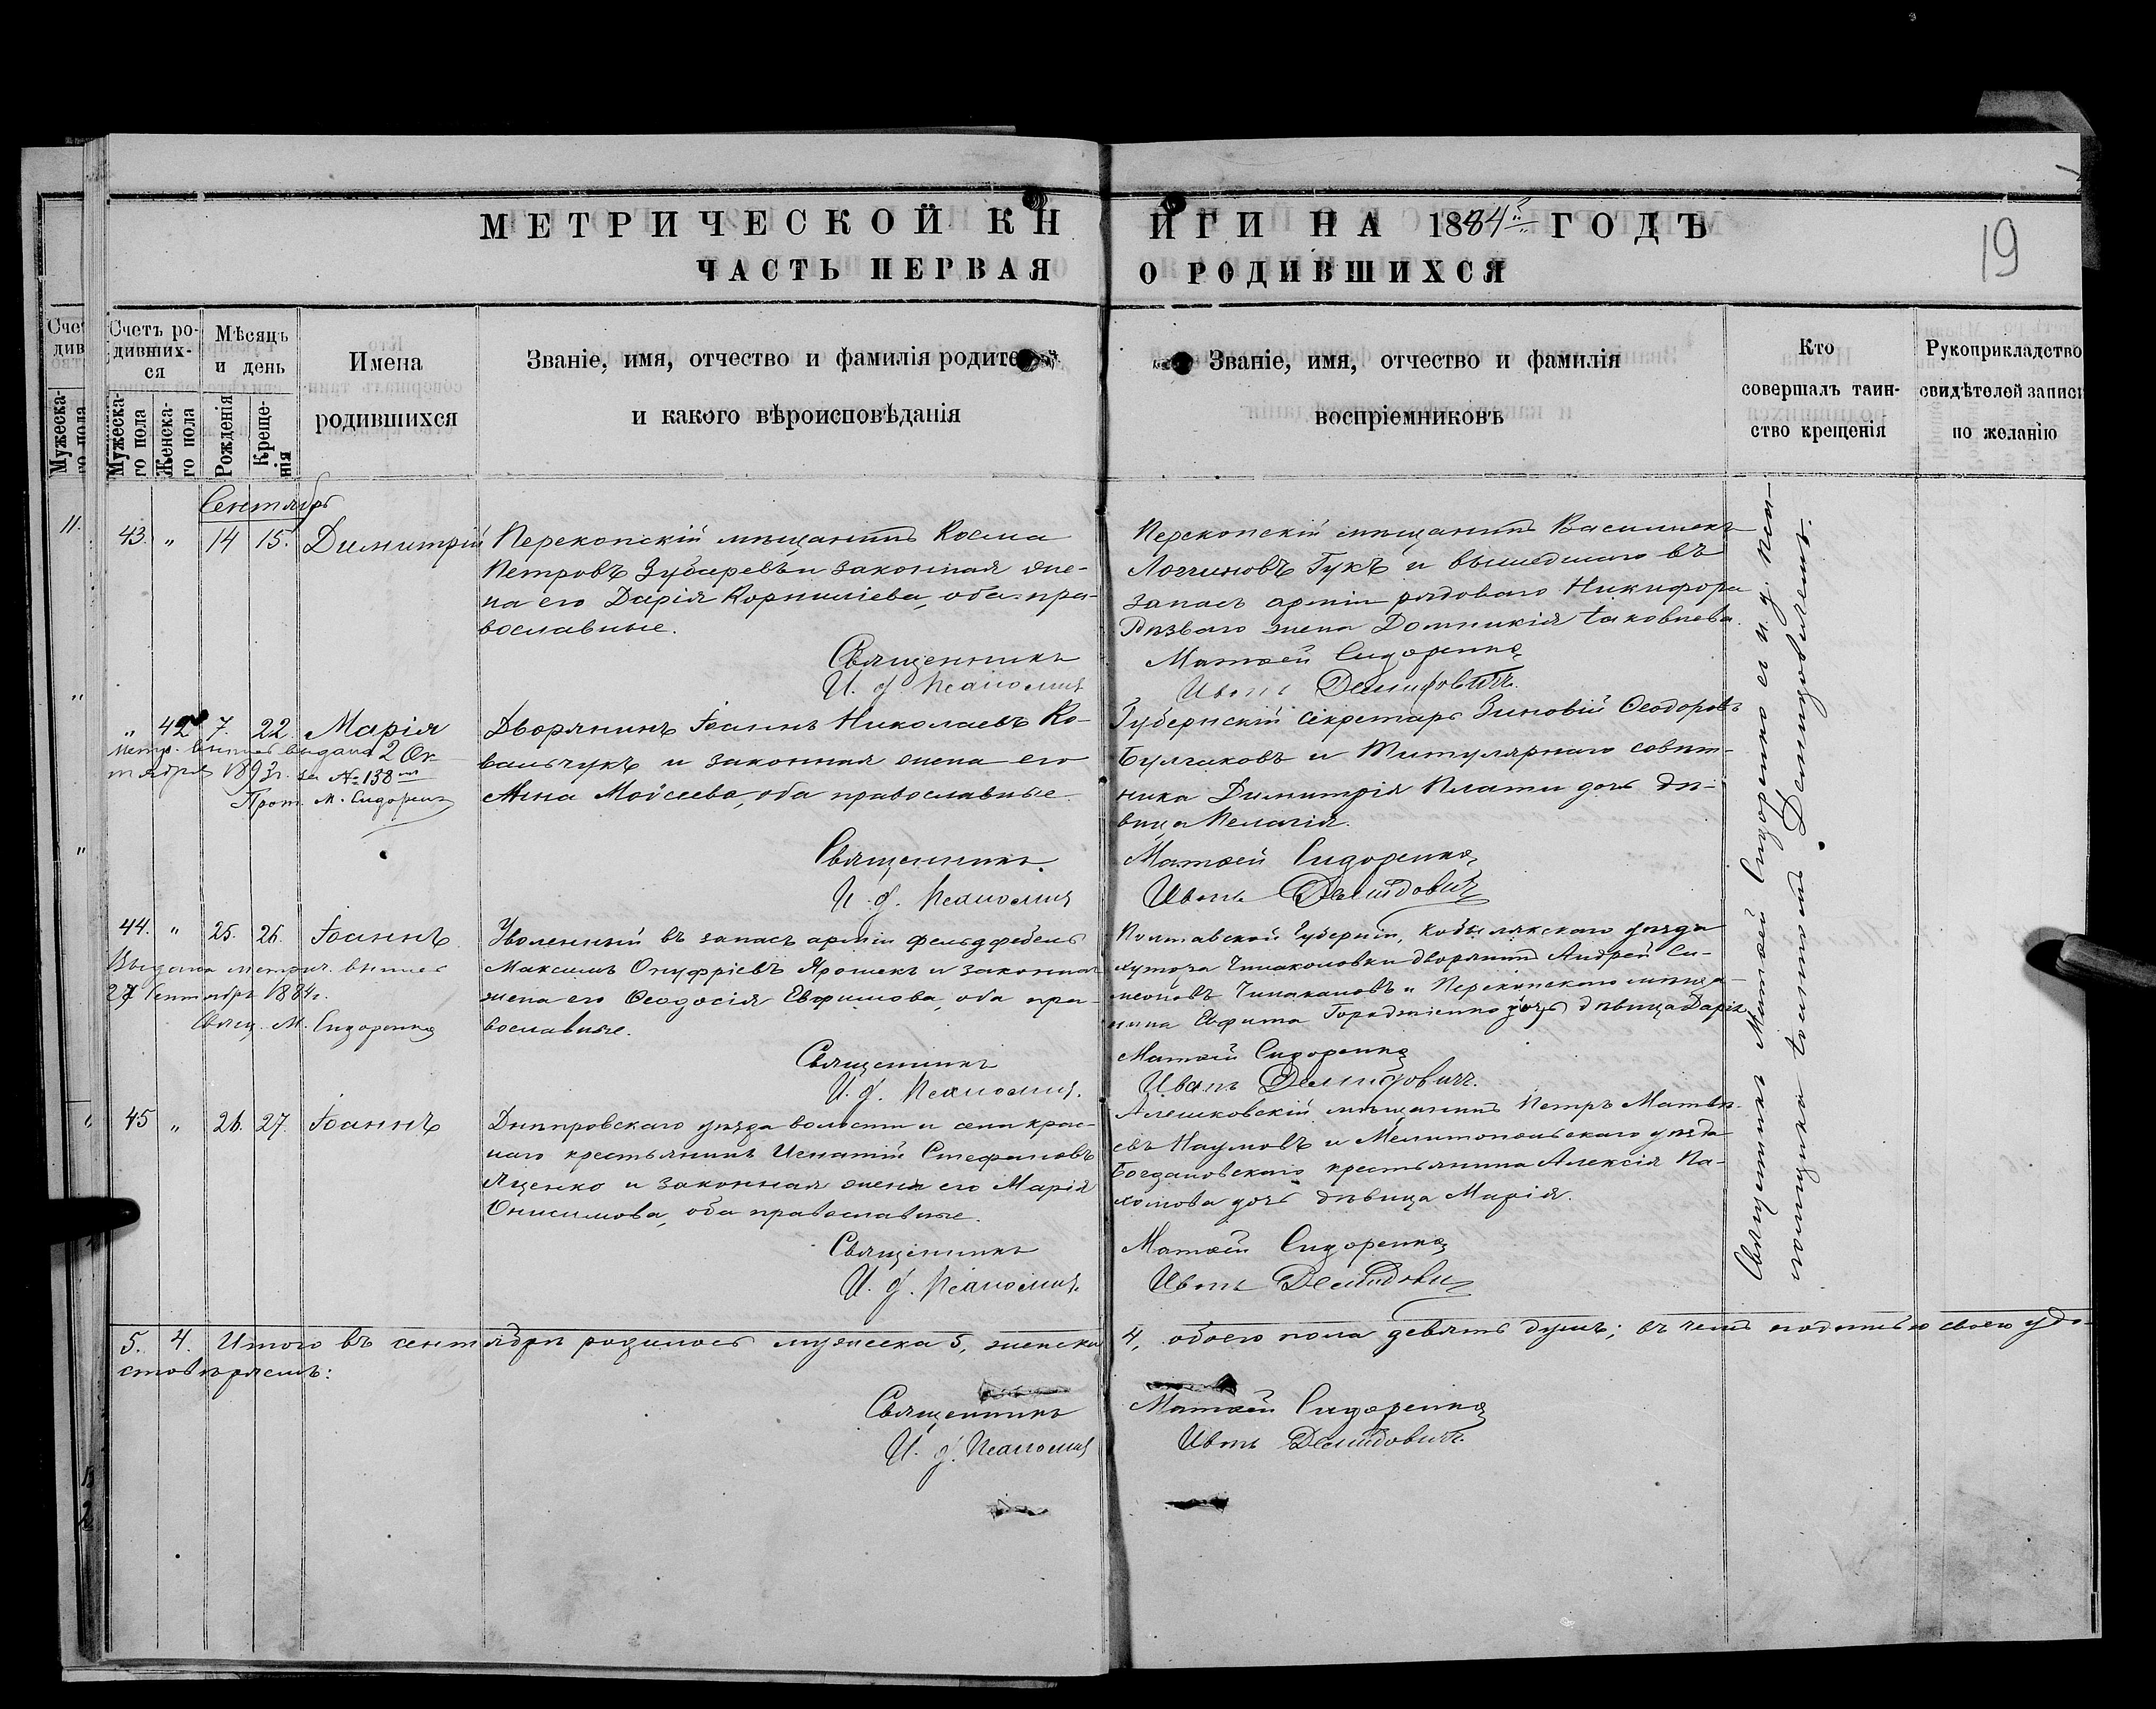 МЕТРИЧЕСКОЙ КНИГИ НА 1884й ГОДЪ
ЧАСТЬ ПЕРВАЯ О РОДИВШИХСЯ
19
Счетъ родивших-
ся
Мужеска-
го пола
Женска-
го пола
Мѣсяцъ
и день
Рожденія
Креще-
нія
Имена
родившихся
Званіе, имя, отчество и фамилія родите
и какого вѣроисповѣданія
Званіе, имя, отчество и фамилія
воспріемниковъ
Кто
совершалъ таин-
ство крещенія
Рукоприкладство
свидѣтелей записи
по желанію
Сентябрь
43. " 14 15. Димитрій
Перекопскій мѣщанинъ Косма
Петровъ Зубаревъ и законная же-
на его Дарія Корниліева, оба пра-
вославные.
Священникъ
И. д. Псаломщ.
Перекопскій мѣщанинъ
Логгиновъ Гукъ и вышедшаго въ
запасъ арміи рядоваго Никифора
жена Домникія Іаковлева.
Матѳей Сидоренко
Иванъ Демидовичъ.
" 42 7. 22. Марія
Метр. выпись выдана 2 Ок-
тября 1893г. за № 138
Прот. М. Сидоренко
Дворянинъ Іоаннъ Николаевъ Ко-
вальчукъ и законная жена его
Анна Моѵсеева, оба православные.
Священникъ
И. д. Псаломщ
Губернскій секретарь Зиновій Ѳеодоровъ
Булгаковъ и Титулярнаго совѣт-
ника Димитрія Плати дочь дѣ-
вица Пелагія.
Матѳей Сидоренко
Иванъ Демидовичъ
44. " 25. 26. Іоаннъ
Выдана метрич. выпись
27 Сентября 1884г.
Свящ. М. Сидоренко
Уволенный въ запасъ арміи фельдфебель
Максимъ Онуфріевъ Ярошекъ и законная
жена его Ѳеодосія Евфимова, оба пра-
вославные.
Священникъ
И. д. Псаломщ.
Полтавской Губерніи, Кобылякскаго уѣзда
хутора дворянинъ Андрей Си-
меоновъ и Перекопскаго мѣща-
нина Евфима дочь дѣвица Дарія
Матѳей Сидоренко
Иванъ Демидовичъ.
45 " 26. 27. Іоаннъ
Днѣпровскаго уѣзда волости и села крас-
наго крестьянинъ Игнатій Стефановъ
Яценко и законная жена его Марія
Онисимова, оба православные.
Священникъ
И. д. Псаломщ.
Алешковскій мѣщанинъ Петръ Матвѣ-
евъ Наумовъ и Мелитопольскаго уѣзда
Богдановскаго крестьянина Алексія Па-
хомова дочь дѣвица Марія.
Матѳей Сидоренко
Иванъ Демидовичъ
Священникъ Матѳей Сидоренко съ и. д. псал-
ломщика Іоанномъ Демидовичемъ.
5. 4. Итого въ сентябрѣ родилось мужеска 5, женска 4, обоего пола девять душъ; въ чемъ подписью своею удо-
стовѣряемъ:
Священникъ Матѳей Сидоренко
И. д. Псаломщ Иванъ Демидовичъ.